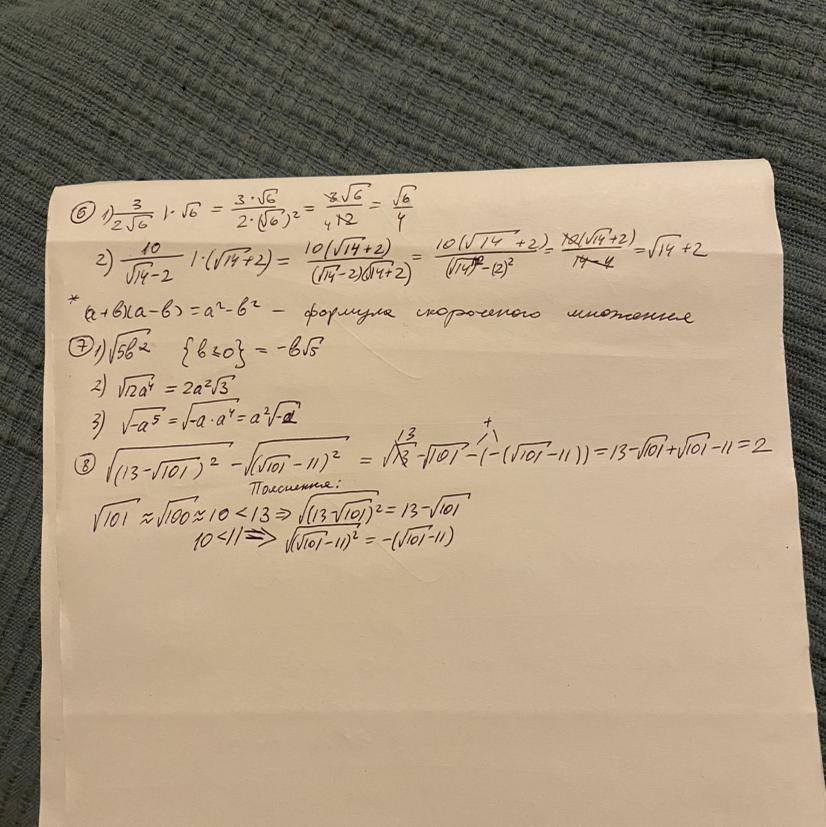 ⑥ 1) 3/(2√6) |·√6 = (3·√6)/(2·(√6)²) = (3√6)/(12) 4 = √6/4
2) 10/(√14-2) |·(√14+2) = (10(√14+2))/((√14-2)(√14+2)) = (10(√14+2))/((√14)²-(2)²) = (10(√14+2))/(14-4) = √14+2
* (a+b)(a-b) = a²-b² - формула скороченого множення
⑦ 1) √(5b²) {b≤0} = -b√5
2) √(12a⁴) = 2a²√3
3) √(-a⁵) = √(-a·a⁴) = a²√(-a)
⑧ √((13-√101)²) - √((√101-11)²) = 13-√101-(-(√101-11)) = 13-√101+√101-11 = 2
+
Пояснення:
√101 ≈ √100 ≈ 10 < 13 ⇒ √((13-√101)²) = 13-√101
10 < 11 ⇒ √((√101-11)²) = -(√101-11)